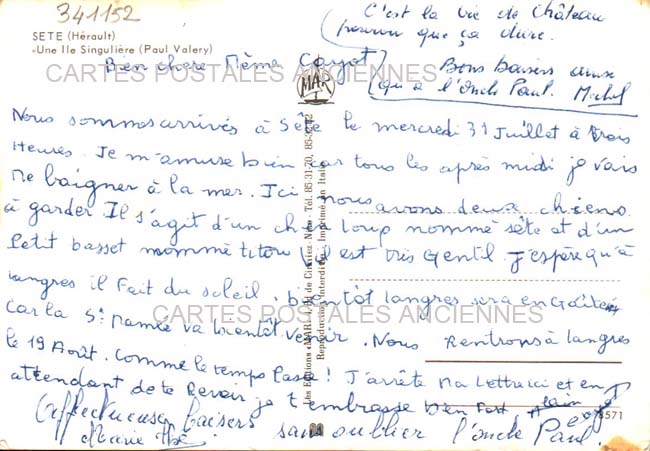 341152
SETE (Hérault)
«Une Ile Singulière (Paul Valery)
C'est la vie de château
pourvu que ça dure.
Bons baisers ainsi
qu'à l'oncle Paul. Michel
Bien chère Mème Cayot
CARTES POSTALES ANCIENNES
MAR
Nous sommes arrivés à Sète le mercredi 31 Juillet à trois
Heures. Je m'amuse bien car tous les après midi je vais
me baigner à la mer. Ici nous avons deux chiens
à garder Il s'agit d'un chien loup nommé sète et d'un
Petit basset nommé titou est très Gentil. J'espère qu'à
langres il Fait du soleil. bientôt langres sera en
car la St Mamès va bientôt venir. Nous Rentrons à langres
CARTES POSTALES ANCIENNES
le 19 Août. Comme le temps Passe! J'arrête ma Lettre ici et en
attendant de te Revoir je t'embrasse bien Fort Alain
Affectueux baisers sans oublier l'oncle Paul.
Marie
Les Editions «MAR» - Tél. 85-31-20, 85-32-42
Reproduction Interdite - Imprimé en Italie
3571